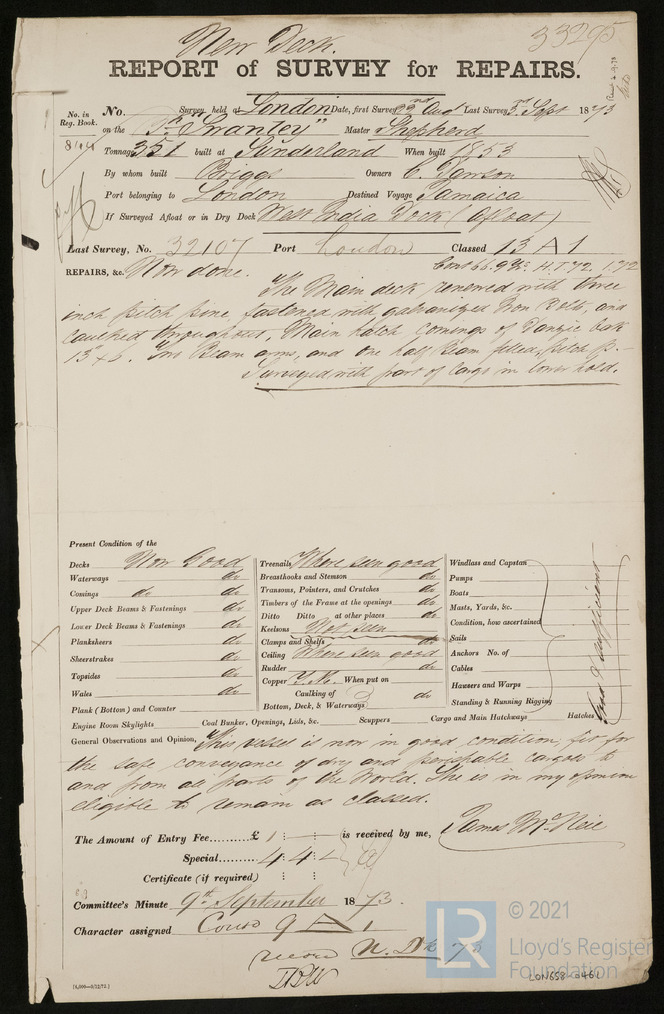 New Deck.
33295
REPORT of SURVEY for REPAIRS.
No. in Reg. Book.
No. Survey held at London Date, first Survey 22nd Augt Last Survey 3rd Sept 1873
on the Master Shepherd
Tonnage 351 built at Sunderland When built 1853
By whom built Briggs Owners C. Dawson
Port belonging to London Destined Voyage Jamaica
If Surveyed Afloat or in Dry Dock West India Dock (Afloat)
Last Survey, No. 32107 Port London Classed 13 A 1
Cont 66. 9 Yrs. H.T. 72 1.72
REPAIRS, &c. Now done.
The Main deck renewed with three
inch pitch pine fastened with galvanized Iron bolts, and
caulked throughout. Main hatch comings of Oak
Two Beam arms, and one half Beam
Surveyed with part of Cargo in lower hold.
Present Condition of the
Decks Now Good
Waterways do
Comings do do
Upper Deck Beams & Fastenings do
Lower Deck Beams & Fastenings do
Planksheers do
Sheerstrakes do
Topsides do
Wales do
Plank (Bottom) and Counter
Engine Room Skylights
Treenails Where seen good
Breasthooks and Stemson do
Transoms, Pointers, and Crutches do
Timbers of the Frame at the openings do
Ditto Ditto at other places do
Keelsons Not seen
Clamps and Shelfs do
Ceiling Where seen good
Rudder do
Copper Y.M. When put on
Caulking of do
Bottom, Deck, & Waterways
Coal Bunker, Openings, Lids, &c. Scuppers
Windlass and Capstan
Pumps
Boats
Masts, Yards, &c.
Condition, how ascertained
Sails
Anchors No. of
Cables
Hawsers and Warps
Standing & Running Rigging
Cargo and Main Hatchways Hatches
Good & sufficient
General Observations and Opinion, This vessel is now in good condition, fit for
the safe conveyance of dry and perishable cargoes to
and from all parts of the World. She is in my opinion
eligible to remain as classed.
The Amount of Entry Fee..........£ 1 : : is received by me,
James McNeil
Special.......... 4 : 4 :
Certificate (if required) : :
Committee's Minute 9th September 1873.
Character assigned Contd 9 A 1
record N. Dk 73
[4,000—9/12/72.]
LR
© 2021
Lloyd's Register
Foundation
LON658-0461